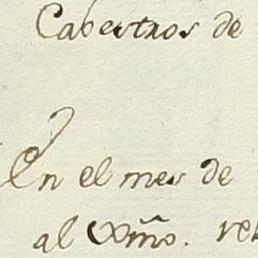 Cabestros de
En el mes de
al Exmo. rel